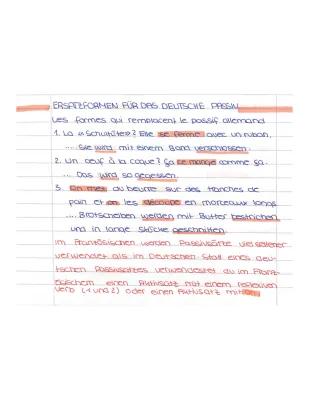 ERSATZFORMEN FÜR DAS DEUTSCHE PASSIV
Les formes qui remplacent le passif allemand
1. La «Schultüte»? Elle se ferme avec un ruban.
.... Sie wird mit einem Band verschlossen.
2. Un oeuf à la coque? Ça se mange comme ça.
... Das wird so gegessen.
3. On met du beurre sur des tranches de
pain et on les découpe en morceaux longs
.... Brotscheiben werden mit Butter bestrichen
und in lange Stücke geschnitten.
Im Französischen werden Passivsätze viel seltener
verwendet als im Deutschen. Statt eines deu-
tschen Passivsatzes verwendest du im Franz-
ösischem einen Aktivsatz mit einem reflexiven
Verb (1 und 2) oder einen Aktivsatz mit on.